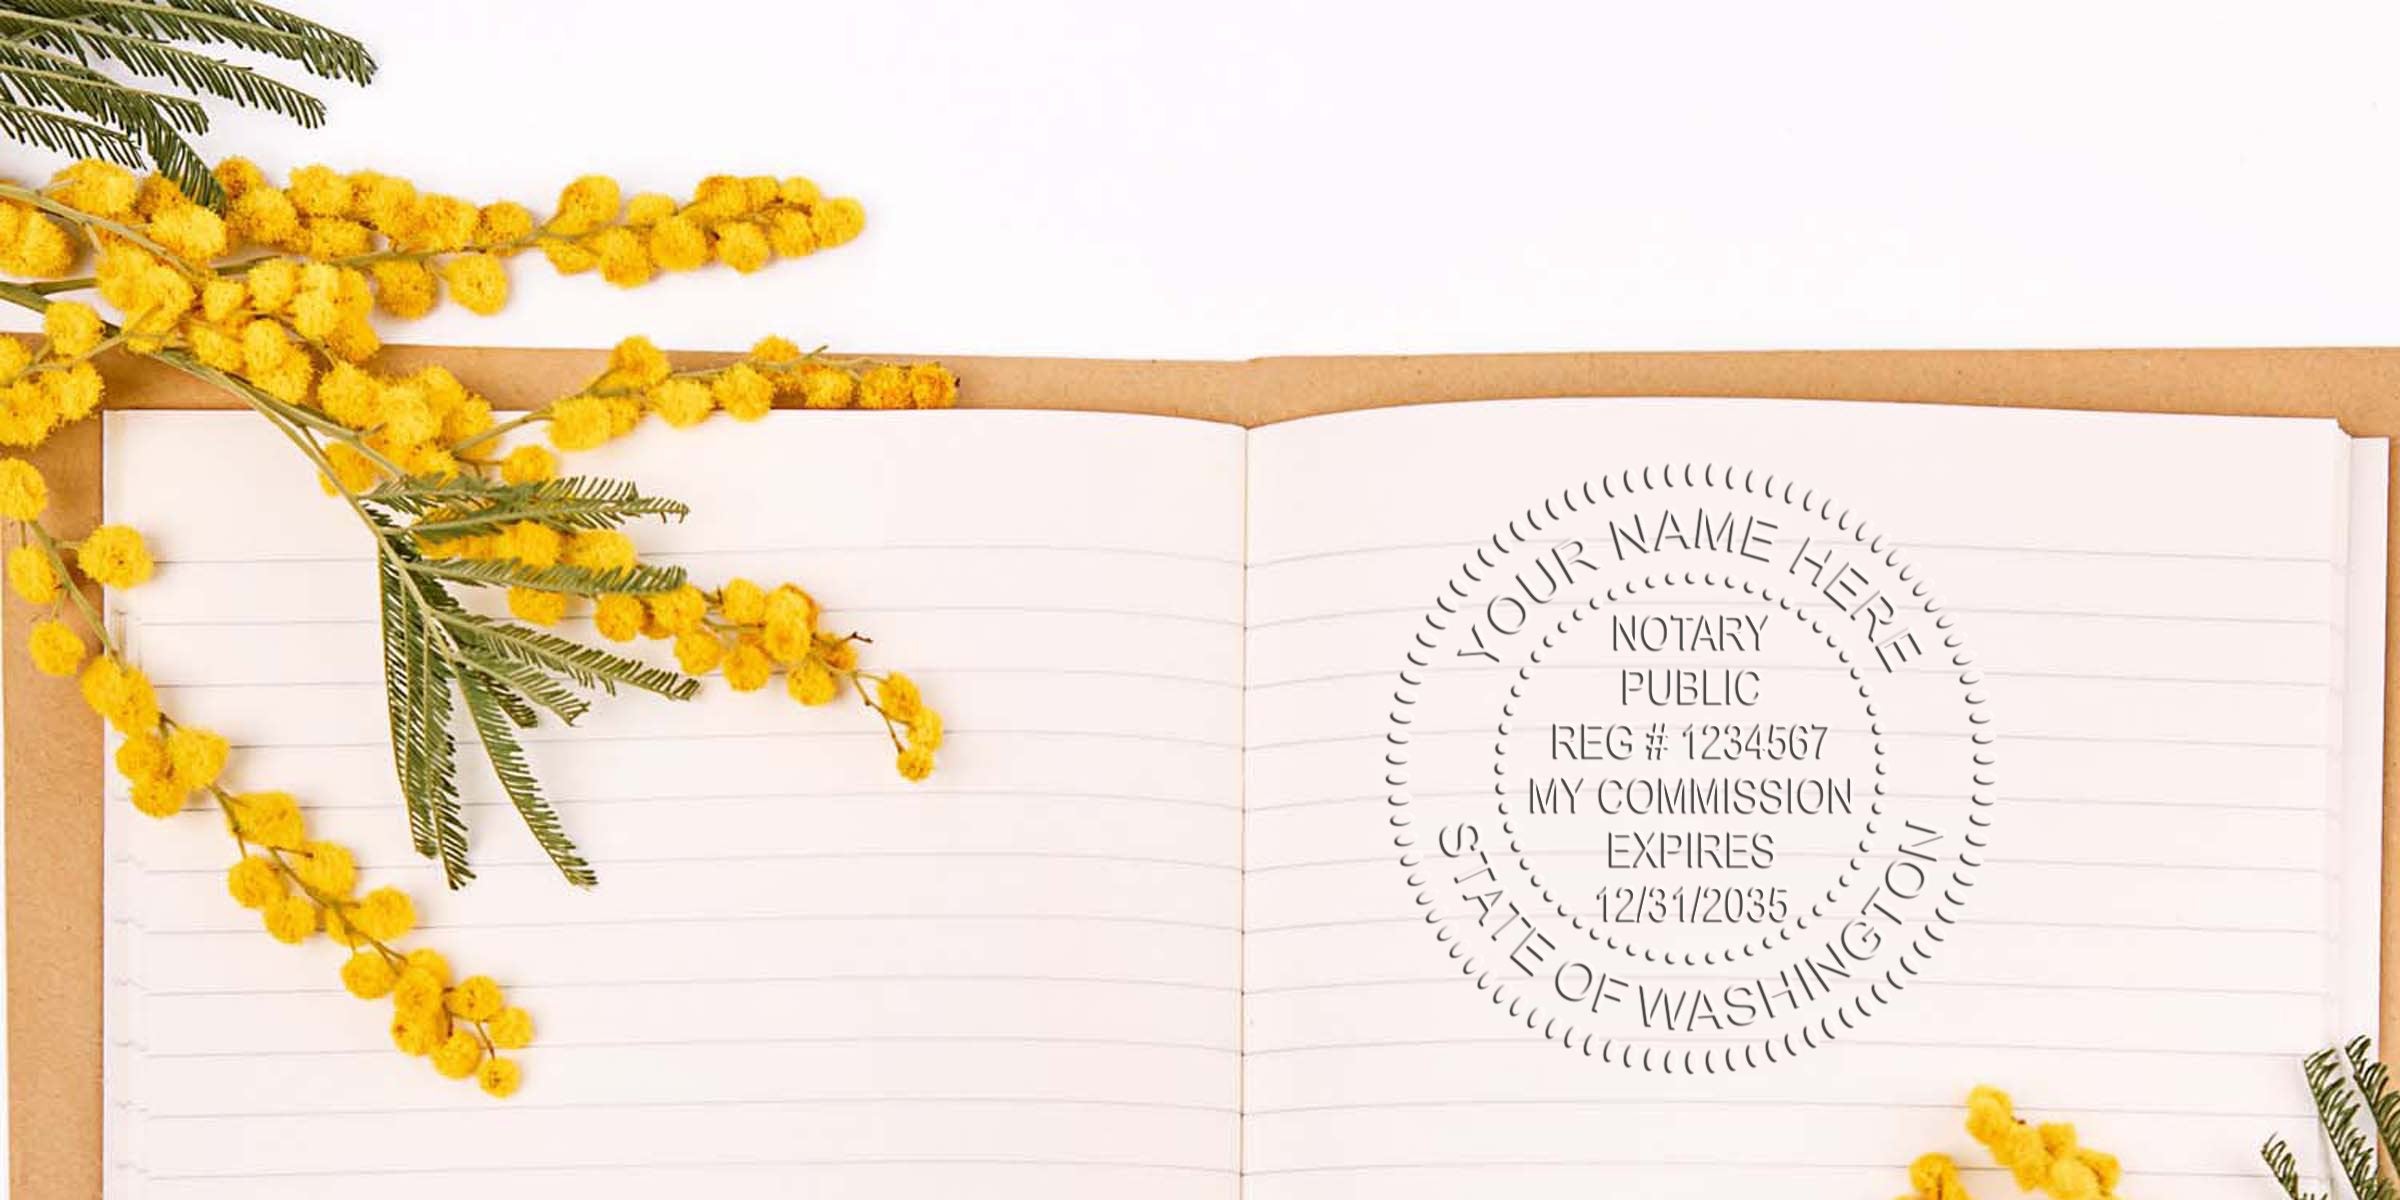 YOUR NAME HERE
NOTARY
PUBLIC
REG # 1234567
MY COMMISSION
EXPIRES
12/31/2035
STATE OF WASHINGTON